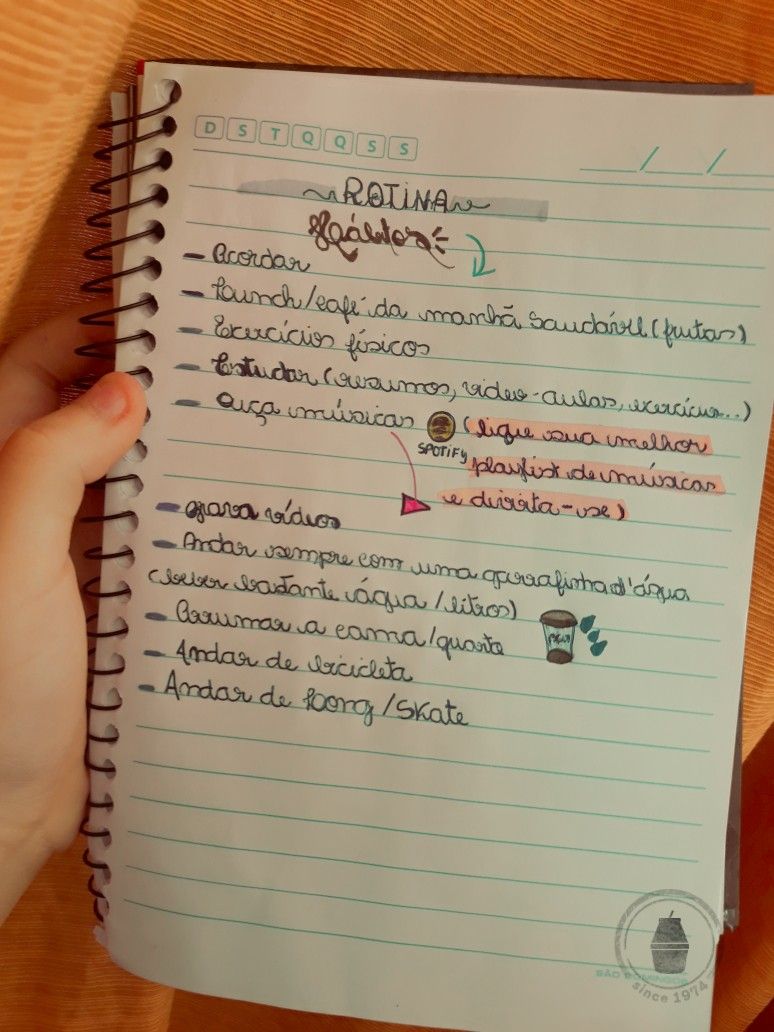 D S T Q Q S S
/ /
ROTINA
Hábitos
- Acordar
- Launch/café da manhã saudável (frutas)
- Exercícios físicos
- Estudar (resumos, vídeo-aulas, exercícios...)
- Ouça músicas (ligue sua melhor
SPOTIFY playlist de músicas
e divirta-se)
- grava vídeos
- Andar sempre com uma garrafinha d'água
(beber bastante água/litros)
- Arrumar a cama/quarto
- Andar de bicicleta
- Andar de long/skate
SÃO DOMINGOS
since 1974